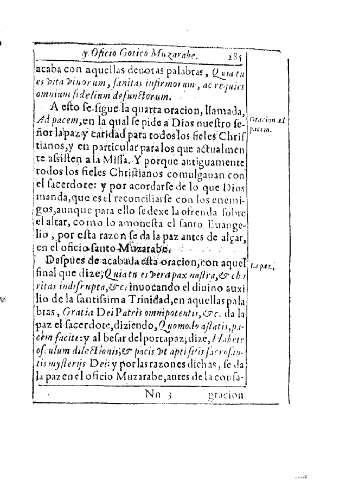 y Oficio Gotico Muzarabe. 285
acaba con aquellas deuotas palabras, Quia tu
es vita viuorum, sanitas infirmorum, ac requies
omnium fidelium defunctorum.
A esto se sigue la quarta oracion, llamada,
Ad pacem, en la qual se pide a Dios nuestro se- Oracion ad
ñor la paz y caridad para todos los fieles Chris pacem.
tianos, y en particular para los que actualmen
te assisten a la Missa. Y porque antiguamente
todos los fieles Christianos comulgauan con
el sacerdote: y por acordarse de lo que Dios
manda, que es el reconciliarse con los enemi-
gos, aunque para ello se dexe la ofrenda sobre
el altar, como lo amonesta el santo Euange-
lio, por esta razon se da la paz antes de alçar,
en el oficio santo Muzarabe.
Despues de acabada esta oracion, con aquel La paz.
final que dize; Quia tu es vera pax nostra, & cha
ritas indisrupta, &c. inuocando el diuino auxi
lio de la santissima Trinidad, en aquellas pala
bras, Gratia Dei Patris omnipotentis, &c. da la
paz el sacerdote, diziendo, Quomodo astatis, pa-
cem facite: y al besar del portapaz, dize, Habete
osculum dilectionis, & pacis vt apti sitis sacrosan-
tis mysterijs Dei: y por las razones dichas, se da
la paz en el oficio Muzarabe, antes de la consa-
Nn 3 gracion